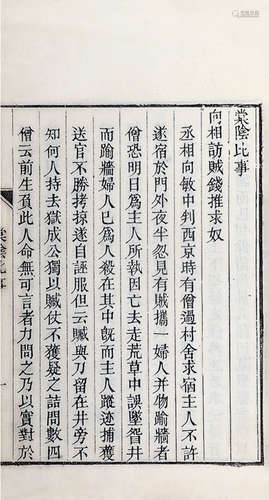 棠陰比事
向相訪賊錢推求奴
丞相向敏中判西京時有僧過村舍求宿主人不許
遂宿於門外夜半忽見有賊攜一婦人并物踰牆者
僧恐明日為主人所執因亡去走荒草中誤墜眢井
而踰牆婦人已為人殺在其中旣而主人蹤迹捕獲
送官不勝拷掠遂自誣服但云贓與刀留在井旁不
知何人持去獄成公獨以贓仗不獲疑之詰問數四
僧云前生負此人命無可言者力問之乃以實對於
棠陰比事
一